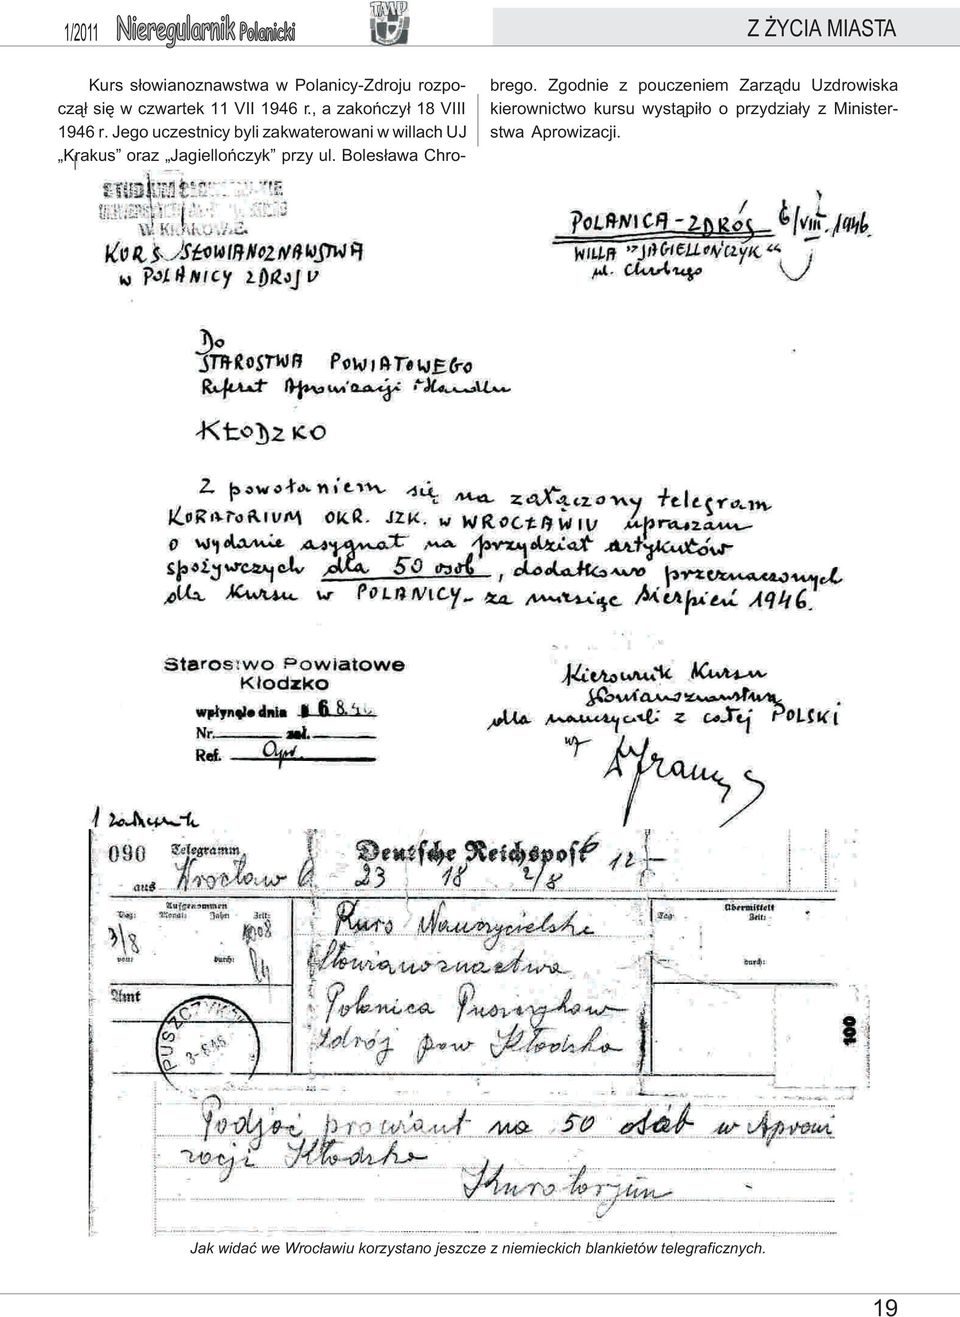 1/2011 Nieregularnik Polanicki
TMP
Z ŻYCIA MIASTA
Kurs słowianoznawstwa w Polanicy-Zdroju rozpo-
czął się w czwartek 11 VII 1946 r., a zakończył 18 VIII
1946 r. Jego uczestnicy byli zakwaterowani w willach UJ
„Krakus” oraz „Jagiellończyk” przy ul. Bolesława Chro-
brego. Zgodnie z pouczeniem Zarządu Uzdrowiska
kierownictwo kursu wystąpiło o przydziały z Minister-
stwa Aprowizacji.
STUDIUM SŁOWIAŃSKIE
W KRAKOWIE
KURS SŁOWIANOZNAWSTWA
w POLANICY ZDROJU
POLANICA-ZDRÓJ 6/VIII. 1946.
WILLA "JAGIELLOŃCZYK"
ul. Chrobrego
Do
STAROSTWA POWIATOWEGO
Referat Aprowizacji i Handlu
KŁODZKO
Z powołaniem się na załączony telegram
KURATORIUM OKR. SZK. w WROCŁAWIU upraszam
o wydanie asygnat na przydział artykułów
spożywczych dla 50 osób, dodatkowo przeznaczonych
dla Kursu w POLANICY - za miesiąc Sierpień 1946.
Starostwo Powiatowe
Kłodzko
wpłynęło dnia 6.8.46
Nr. zał.
Ref. Apr.
Kierownik Kursu
Słowianoznawstwa
dla nauczycieli z całej POLSKI
1 załącznik
090 Telegramm Deutsche Reichspost 12
aus Wrocław 23 18 2/8
Aufgenommen
Tag: Monat: Jahr: Zeit:
3/8
von: durch:
Amt
Kurs Nauczycielski
Słowianoznactwa
Polanica
Zdrój pow Kłodzko
Übermittelt
Tag: Zeit:
durch:
PUSZCZYKÓW
100
Podjąć prowiant na 50 osób w Aprowi
zacji Kłodzko
Kuratorjum
Jak widać we Wrocławiu korzystano jeszcze z niemieckich blankietów telegraficznych.
19